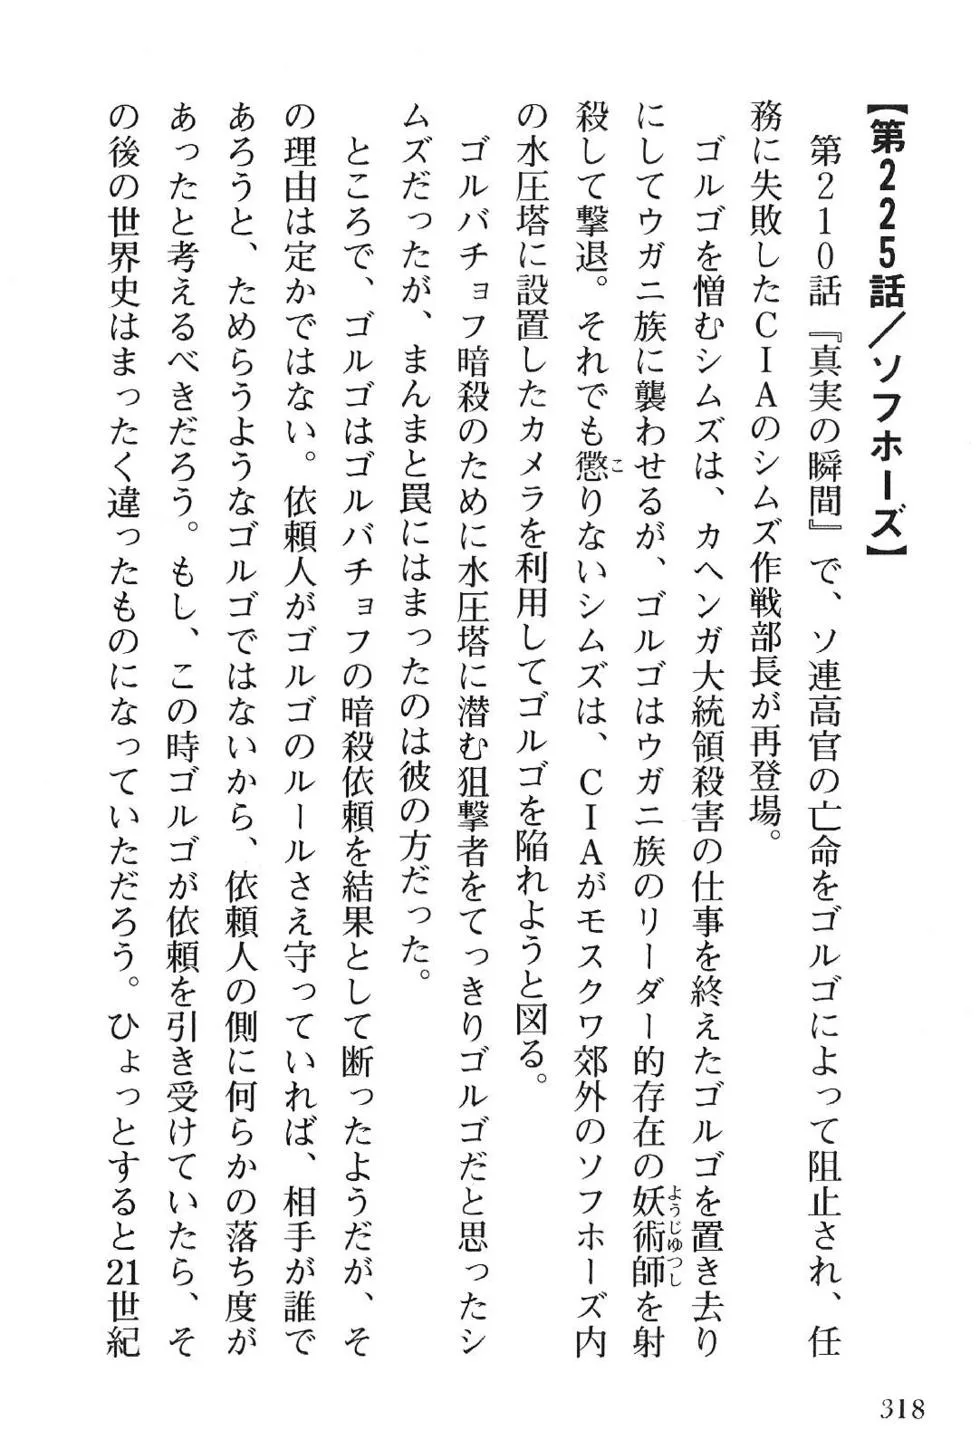 【第225話／ソフホーズ】
　第210話『真実の瞬間』で、ソ連高官の亡命をゴルゴによって阻止され、任
務に失敗したCIAのシムズ作戦部長が再登場。
　ゴルゴを憎むシムズは、カヘンガ大統領殺害の仕事を終えたゴルゴを置き去り
にしてウガニ族に襲わせるが、ゴルゴはウガニ族のリーダー的存在の妖術師を射
ようじゅつし
殺して撃退。それでも懲りないシムズは、CIAがモスクワ郊外のソフホーズ内
こ
の水圧塔に設置したカメラを利用してゴルゴを陥れようと図る。
　ゴルバチョフ暗殺のために水圧塔に潜む狙撃者をてっきりゴルゴだと思ったシ
ムズだったが、まんまと罠にはまったのは彼の方だった。
　ところで、ゴルゴはゴルバチョフの暗殺依頼を結果として断ったようだが、そ
の理由は定かではない。依頼人がゴルゴのルールさえ守っていれば、相手が誰で
あろうと、ためらうようなゴルゴではないから、依頼人の側に何らかの落ち度が
あったと考えるべきだろう。もし、この時ゴルゴが依頼を引き受けていたら、そ
の後の世界史はまったく違ったものになっていただろう。ひょっとすると21世紀
318